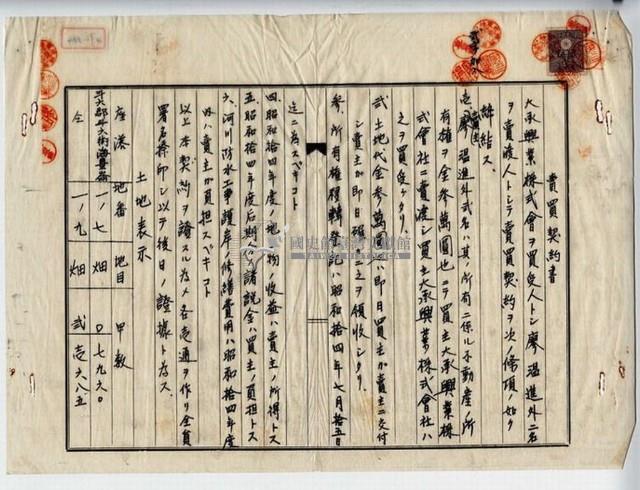 賣買契約書
大承興業株式會ヲ買受人トシ廖溫進外二名
ヲ賣渡人トシテ賣買契約ヲ次ノ條項ノ如ク
締結ス
壱、廖溫進外弍名ハ其ノ所有ニ係ル不動産ノ所
有權ヲ金参萬圓也ニテ買主大承興業株
式會社ニ賣渡シ買主大承興業株式會社ハ
之ヲ買受ケタリ
弍、土地代金参萬圓ハ即日買主カ賣主ニ交付
シ賣主ハ即日正ニ之ヲ領收シタリ
参、所有權移轉登記ハ昭和拾四年七月拾五日
迄ニ為スベキコト
四、昭和拾四年度ノ地上物ノ收益ハ賣主ノ所得トス
五、昭和拾四年度后期ノ諸税金ハ買主ノ負担トス
六、河川防水工事護岸ノ修繕費用ハ昭和拾四年度
以ハ賣主カ負担スベキコト
以上本契約ヲ證スル為メ各壱通ヲ作リ全員
署名捺印シ以テ後日ノ證據ト為ス
土地表示
座落 地番 地目 甲数
斗六郡斗六街海豊崙
一ノ七 畑 〇七九六〇
仝 一ノ九 畑 弍壱六八五
國史館臺灣文獻館